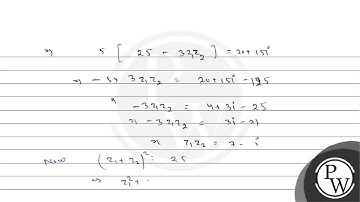 ⇒ 5 [ 25 - 3z₁z₂ ] = 20 + 15i
⇒ - 3z₁z₂ = 20 + 15i - 125
⇒ -3z₁z₂ = 4 + 3i - 25
⇒ -3z₁z₂ = 3i - 21
⇒ z₁z₂ = 7 - i
Now (z₁ + z₂)² = 25
⇒ z₁² +
PW